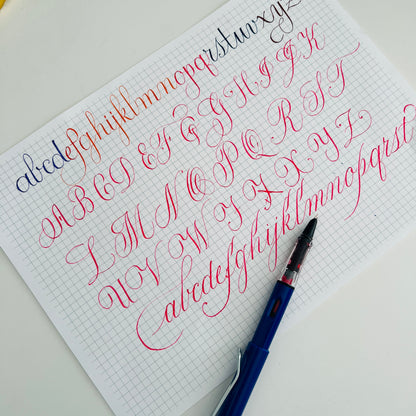 abcdefghijklmnopqrstuvwxyz
A B C D E F G H I J K
L M N O P Q R S T
U V W X Y Z
abcdefghijklmnopqrst